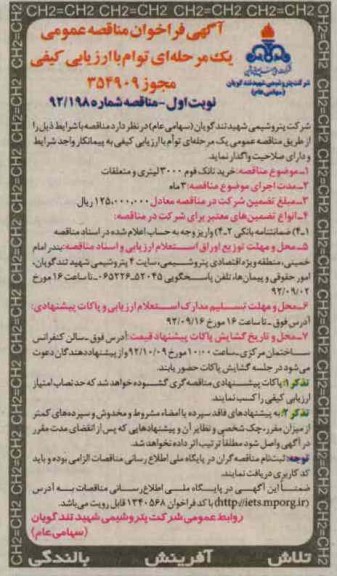 CH2=CH2 CH2=CH2 CH2=CH2 CH2=CH2 CH2=CH2
آگهی فراخوان مناقصه عمومی
یک مرحله‌ای توام با ارزیابی کیفی
مجوز ۳۵۴۹۰۹
شرکت پتروشیمی شهید تند گویان
(سهامی عام)
نوبت اول - مناقصه شماره ۹۲/۱۹۸
شرکت پتروشیمی شهید تندگویان (سهامی عام) در نظر دارد مناقصه با شرایط ذیل را
از طریق مناقصه عمومی یک مرحله‌ای توأم با ارزیابی کیفی به پیمانکار واجد شرایط
و دارای صلاحیت واگذار نماید.
۱- موضوع مناقصه: خرید تانک فوم ۳۰۰۰ لیتری و متعلقات
۲- مدت اجرای موضوع مناقصه: ۳ ماه
۳- مبلغ تضمین شرکت در مناقصه معادل ۱۲۵،۰۰۰،۰۰۰ ریال
۴- انواع تضمین‌های معتبر برای شرکت در مناقصه:
۴-۱) ضمانتنامه بانکی ۴-۲) واریز وجه به حساب اعلام شده در اسناد مناقصه
۵- محل و مهلت توزیع اوراق استعلام ارزیابی و اسناد مناقصه: بندر امام
خمینی، منطقه ویژه اقتصادی پتروشیمی، سایت ۴ پتروشیمی شهید تندگویان،
امور حقوقی و پیمان‌ها، تلفن پاسخگویی ۵۲۰۴۵-۰۶۵۲۲۶ تا ساعت ۱۶ مورخ
۹۲/۰۹/۰۲
۶- محل و مهلت تسلیم مدارک استعلام ارزیابی و پاکات پیشنهادی:
آدرس فوق - تا ساعت ۱۶ مورخ ۹۲/۰۹/۱۶
۷- محل و تاریخ گشایش پاکات پیشنهاد قیمت: آدرس فوق - سالن کنفرانس
ساختمان مرکزی - ساعت ۱۰:۰۰ مورخ ۹۲/۱۰/۰۹ و از پیشنهاددهندگان دعوت
می شود در جلسه گشایش پاکات حضور یابند.
تذکر ۱: پاکات پیشنهادی مناقصه گری گشوده خواهد شد که حد نصاب امتیاز
ارزیابی کیفی را کسب نمایند.
تذکر ۲: به پیشنهادهای فاقد سپرده یا امضاء مشروط و مخدوش و سپرده‌های کمتر
از میزان مقرر، چک شخصی و نظایر آن و پیشنهادهایی که پس از انقضای مدت مقرر
در آگهی واصل شود مطلقا ترتیب اثر داده نخواهد شد.
توجه: ثبت‌نام مناقصه گران در پایگاه ملی اطلاع رسانی مناقصات الزامی بوده و باید
کد کاربری دریافت نمایند.
ضمناً این آگهی در پایگاه ملی اطلاع رسانی مناقصات به آدرس
(http://iets.mporg.ir) با کد فراخوان ۱۳۴۰۵۶۸ قابل رویت می‌باشد.
روابط عمومی شرکت پتروشیمی شهید تند گویان
(سهامی عام)
تلاش آفرینش بالندگی